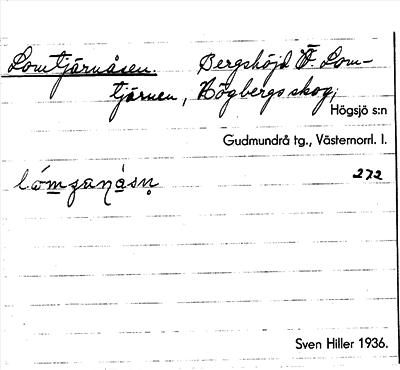 Lomtjärnåsen. Bergshöjd Ö. Lom-
tjärnen, Högbergs skog;
Högsjö s:n
Gudmundrå tg., Västernorrl. l.
272
Sven Hiller 1936.